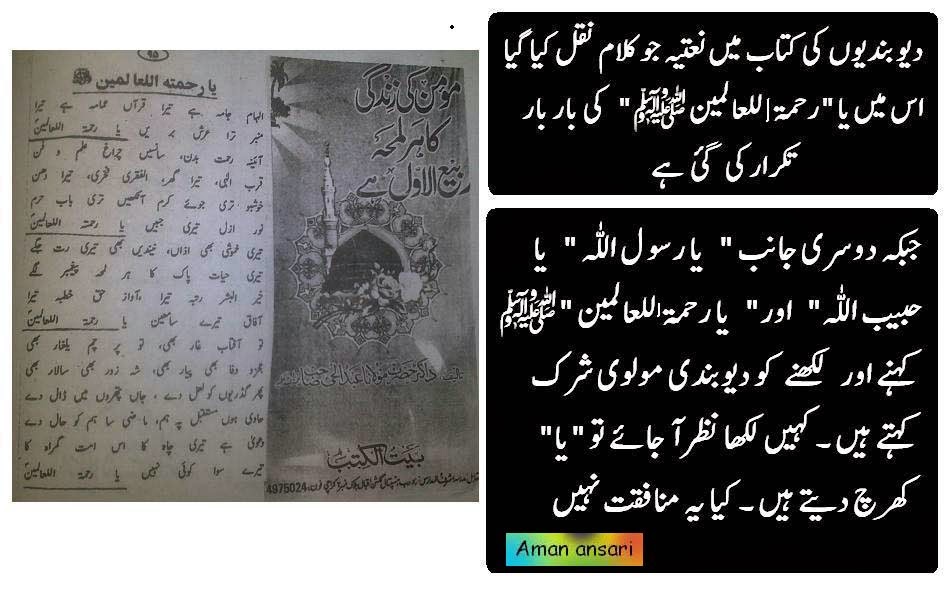 دیوبندیوں کی کتاب میں نعتیہ جو کلام نقل کیا گیا
اس میں یا "رحمۃ اللعالمین ﷺ" کی بار بار
تکرار کی گئ ہے
جبکہ دوسری جانب " یا رسول اللہ " یا
حبیب اللہ " اور " یا رحمۃ اللعالمین "ﷺ
کہنے اور لکھنے کو دیوبندی مولوی شرک
کہتے ہیں۔ کہیں لکھا نظر آ جائے تو "یا"
کھرچ دیتے ہیں۔ کیا یہ منافقت نہیں
Aman ansari
مؤمن کی زندگی
کا ہر لمحہ
ربیع الاوّل ہے
بیت الکتب
4975024
۹۵
یا رحمتہ اللعالمین ﷺ
الہام جامہ ہے تیرا قرآں عمامہ ہے تیرا
منبر ترا عرش بریں یا رحمتہ اللعالمین
آئینہ رحمت بدن، سانسیں چراغ علم و فن
قرب الٰہی، تیرا گھر، الفقری فخری، تیرا دھن
خوشبو تری جوئے کرم آنکھیں تری باب حرم
نور ازل تیری جبیں یا رحمتہ اللعالمین
تیری خموشی بھی اذاں، نیندیں بھی تیری رت جگے
تیری حیات پاک کا ہر لمحہ پیغمبر لگے
خیر البشر رتبہ تیرا ،آواز حق خطبہ تیرا
آفاق تیرے سامعین یا رحمتہ اللعالمین
تو آفتاب غار بھی، تو پرچم یلغار بھی
عجز و وفا بھی پیار بھی، شہ زور بھی سالار بھی
پھر گڈریوں کو لعل دے ، جاں پتھروں میں ڈال دے
حاوی ہوں مستقبل پہ ہم، ماضی سا ہم کو حال دے
دعویٰ ہے تیری چاہ کا اس امت گمراہ کا
تیرے سوا کوئی نہیں یا رحمتہ اللعالمین